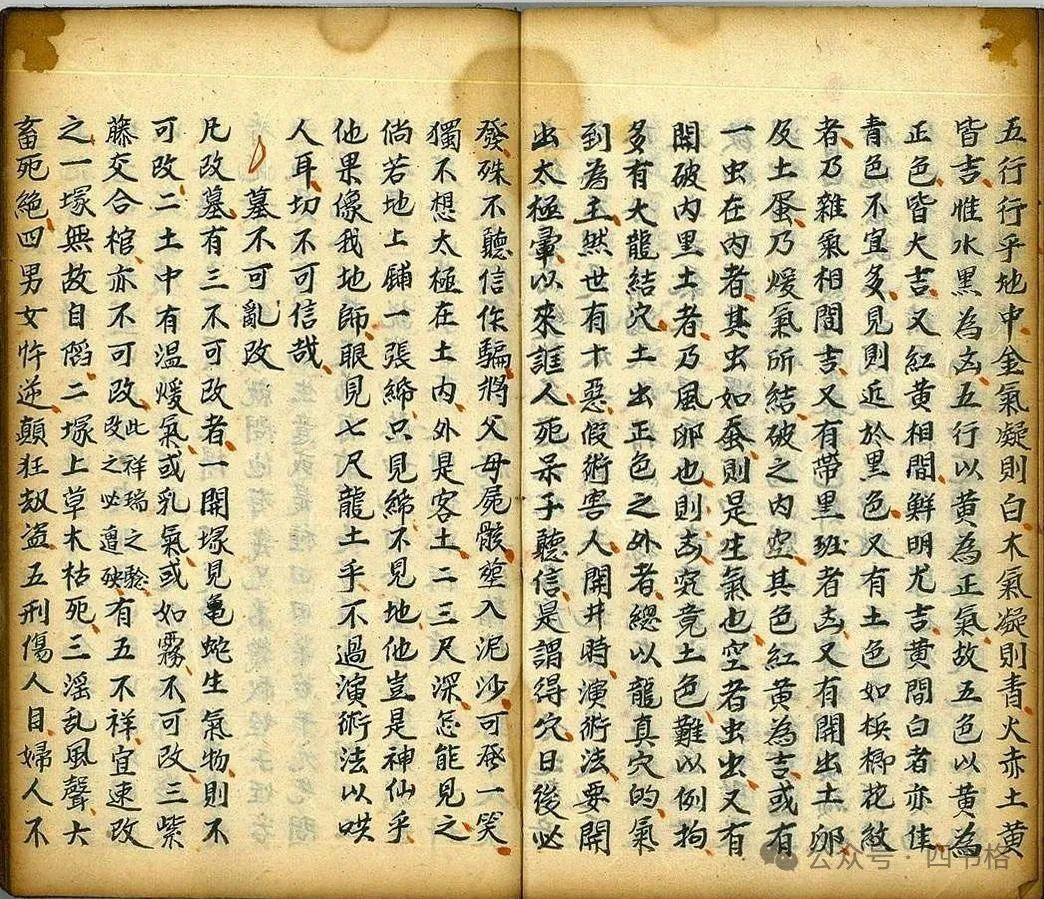 五行行乎地中金氣凝則白木氣凝則青火赤土黃
皆吉惟水黑為凶五行以黃為正氣故五色以黃為
正色皆大吉又紅黃相間鮮明尤吉黃間白者亦佳
青色不宜多見則近於黑色又有土色如梹榔花紋
者乃雜氣相間吉又有帶黑班者凶又有開出土卵
及土蛋乃煖氣所結破之內空其色紅黃為吉或有
一虫在內者其虫如蚕則是生氣也空者虫出又有
開破內里土者乃風卵也則凶究竟土色難以例拘
多有大龍結穴土出正色之外者總以龍真穴的氣
到為主然世有十惡假術害人開井時演術法要開
出太極暈以來誆人死呆子聽信是謂得穴日後必
發殊不聽信作騙將父母屍骸塟入泥沙可發一笑
獨不想太極在土內外是客土二三尺深怎能見之
倘若地上鋪一張締只見締不見地他豈是神仙乎
他果像我地師眼見七尺龍土乎不過演術法以哄
人耳切不可信哉
墓不可亂改
凡改墓有三不可改者一開塚見龜蛇生氣物則不
可改二土中有溫煖氣或乳氣或如霧不可改三紫
藤交合棺亦不可改此祥瑞之驗改之必遭殃有五不祥宜速改
之一塚無故自陷二塚上草木枯死三淫乱風聲大
畜死絕四男女忤逆顛狂刼盜五刑傷人目婦人不
公众号·四书格